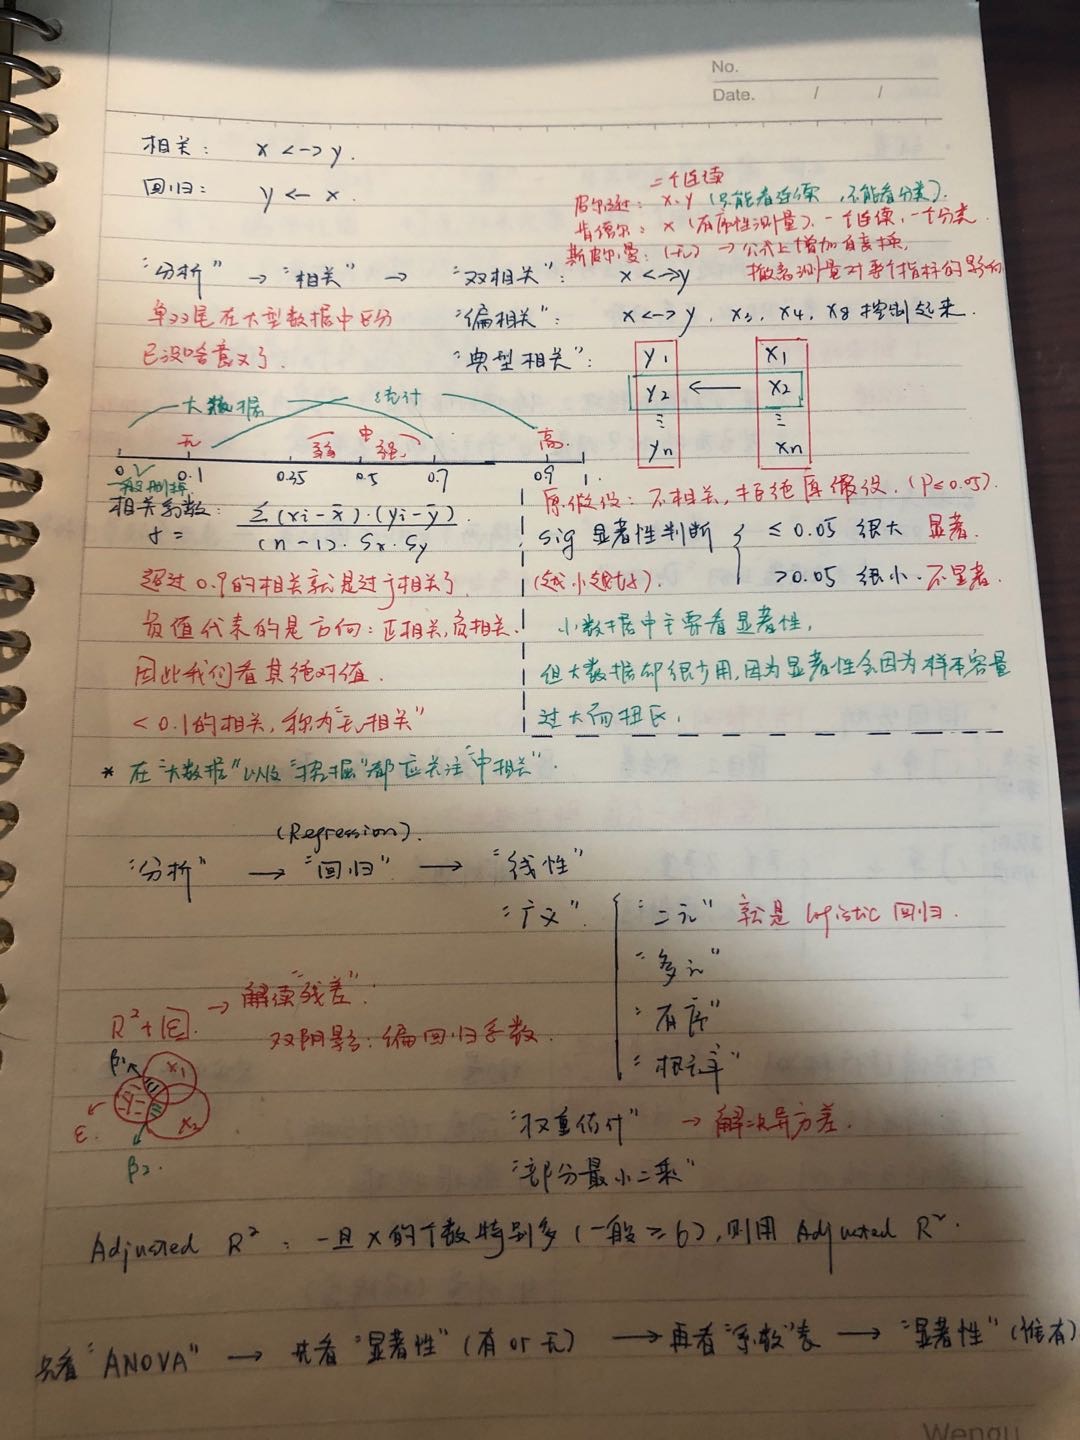 No.
Date. / /
相关: x <-> y.
回归: y <- x.
二个连续
皮尔逊: x、y (只能看连续,不能看分类).
肯德尔: x (有序性测量). 一个连续, 一个分类.
斯皮尔曼: (无) → 公式上增加自变换,
测量对两个指标的影响
"分析" → "相关" → "双相关": x <-> y
单双尾在大型数据中区分
已没啥意义了.
"偏相关": x <-> y, x3, x4, x8 控制起来.
"典型相关": y1 x1
y2 ← x2
⋮ ⋮
yn xn
大数据 统计
无 弱 中 强 高
0 0.1 0.35 0.5 0.7 0.9 1
一般删掉
相关系数: Σ(xi-x̄)·(yi-ȳ)
r = (n-1)·Sx·Sy
原假设: 不相关, 拒绝原假设. (P≤0.05).
Sig 显著性判断 { ≤ 0.05 很大 显著.
(越小越好). >0.05 很小. 不显著.
超过0.9的相关就是过于相关了
负值代表的是方向: 正相关, 负相关.
因此我们看其绝对值.
<0.1的相关, 称为"无相关"
小数据中主要看显著性,
但大数据却很少用, 因为显著性会因为样本容量
过大而扭区.
* 在"大数据"以及"挖掘"都应关注"中相关".
(Regression).
"分析" → "回归" → "线性"
"广义" { "二元" 就是 logistic 回归.
"多元"
"有序"
"概率"
R²+|E|. → 解读"残差":
双阴影: 偏回归系数.
β1 x1
y
ε. x2
β2.
"权重估计" → 解决异方差.
"部分最小二乘"
Adjusted R²: 一旦x的个数特别多 (一般≥6), 则用 Adjusted R².
先看 "ANOVA" → 先看 "显著性" (有 or 无) → 再看"系数"表 → "显著性" (谁有)
Wengu